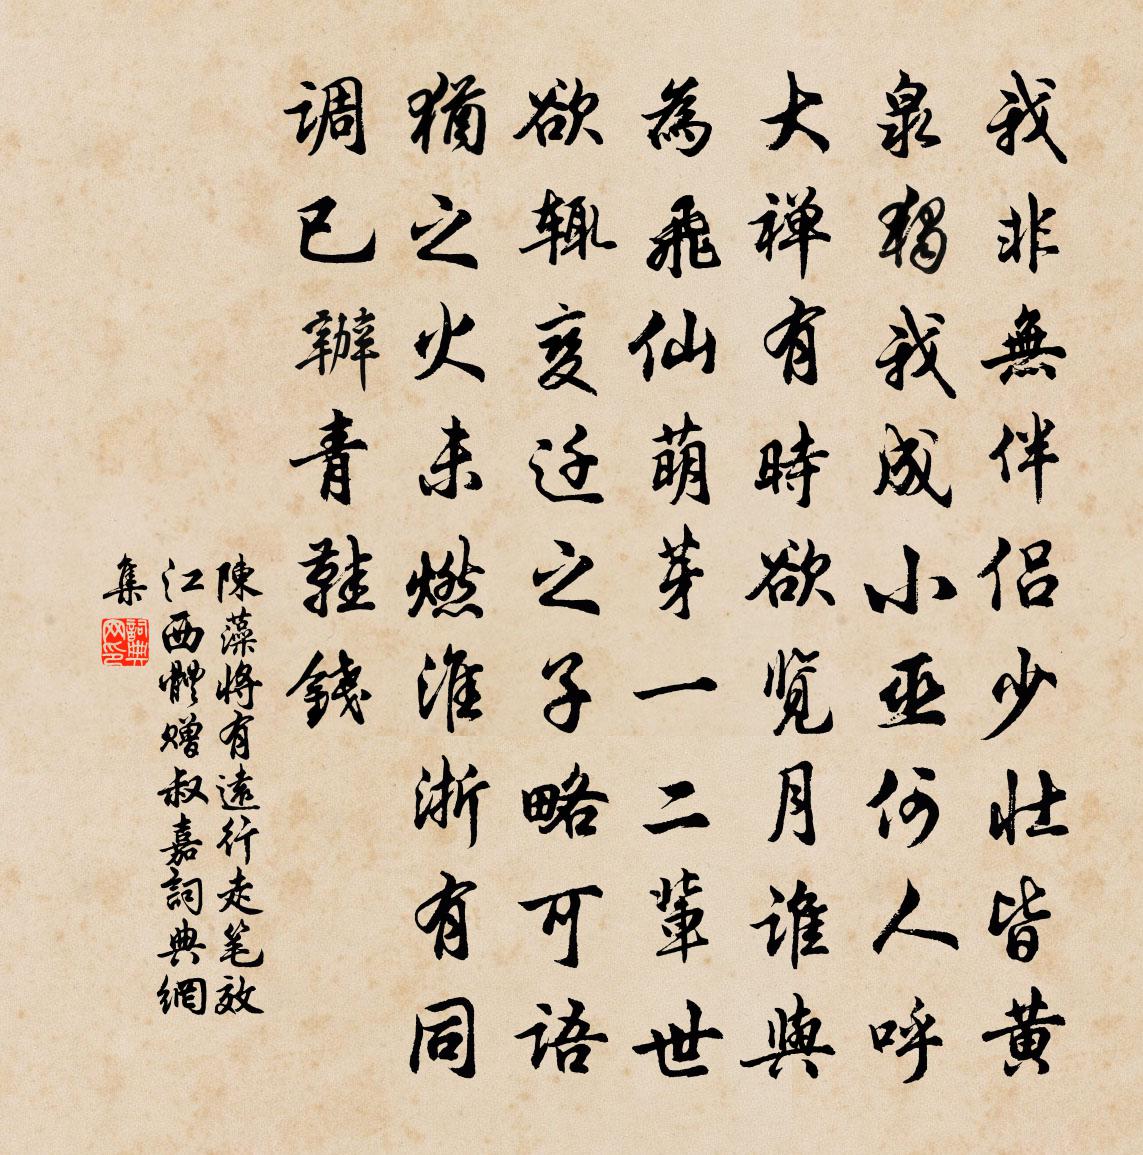 我非無伴侣少壮皆黄
泉獨我成小巫何人呼
大禅有時欲览月谁與
為飛仙萌芽一二輩世
欲辄变迁之子略可語
猶之火未燃淮浙有同
调已辦青鞋錢
陳藻将有遠行走笔效
江西體赠叔嘉詞典網
集
詞典
网印